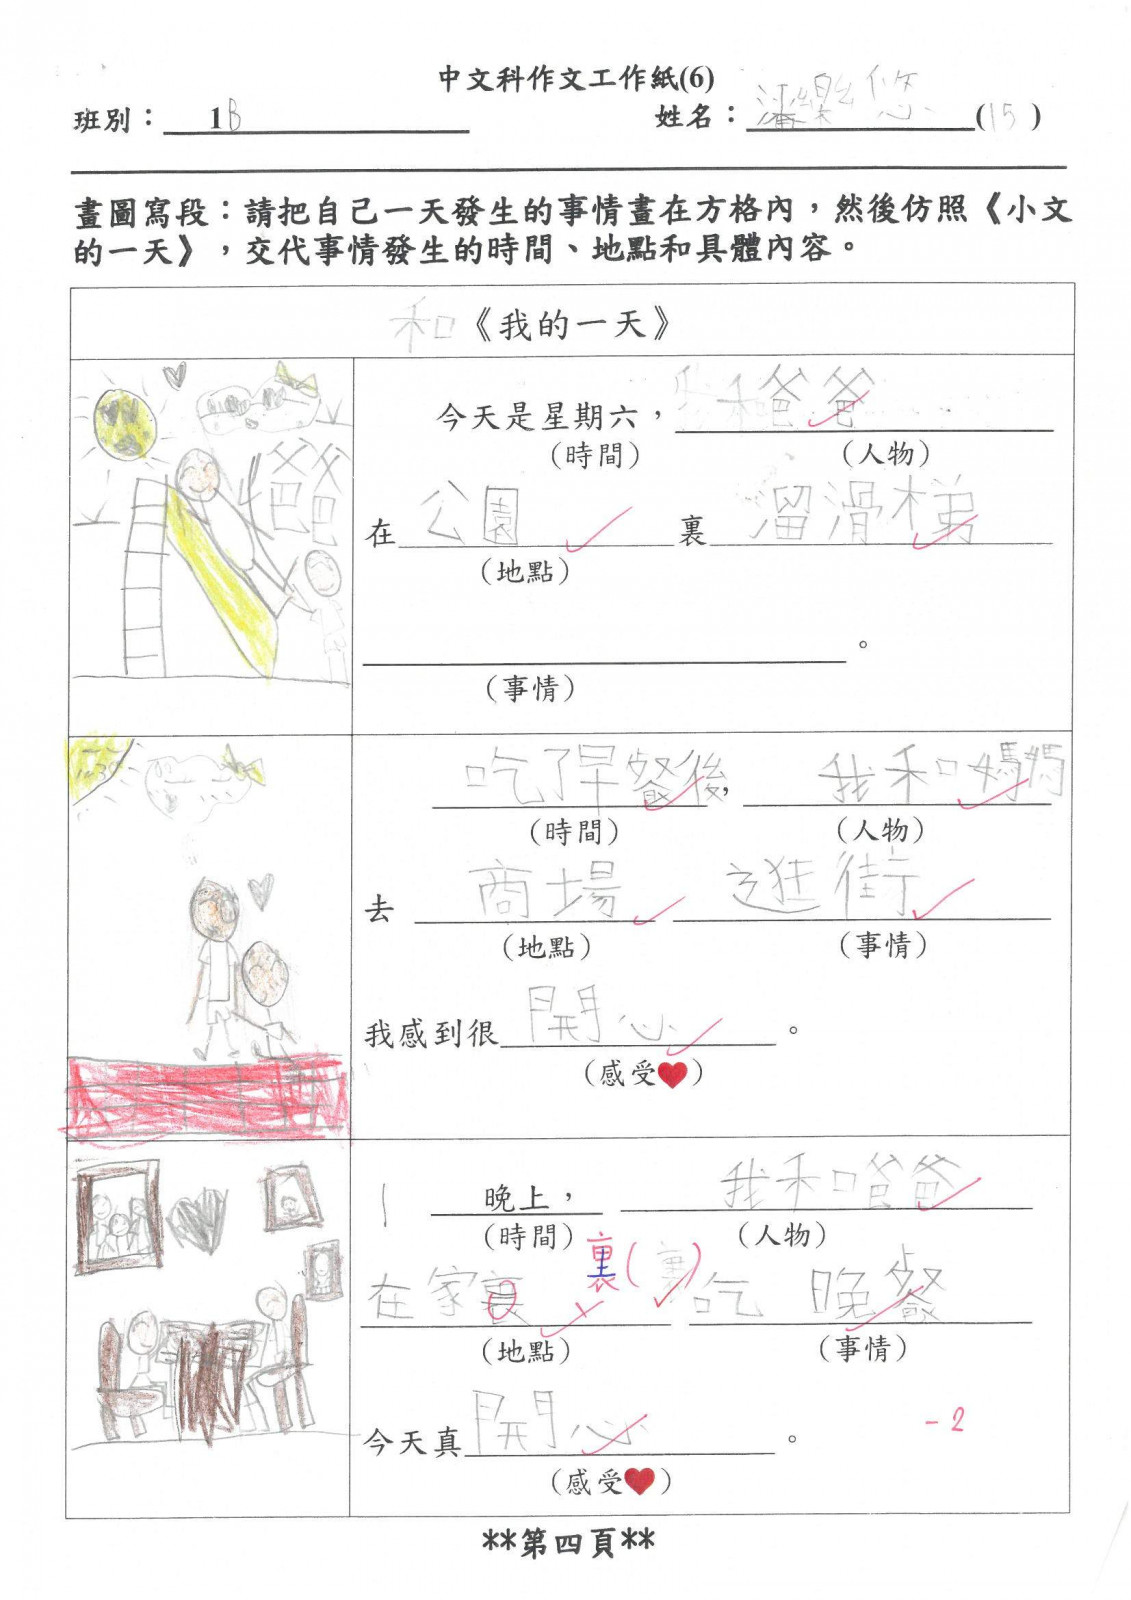 中文科作文工作紙(6)
班別： 1B 姓名： 潘樂悠 (15)
畫圖寫段：請把自己一天發生的事情畫在方格內，然後仿照《小文
的一天》，交代事情發生的時間、地點和具體內容。
和《我的一天》
爸爸
今天是星期六，我和爸爸
(時間) (人物)
在公園裏溜滑梯
(地點)
。
(事情)
吃了早餐後，我和媽媽
(時間) (人物)
去 商場 逛街
(地點) (事情)
我感到很開心。
(感受♥)
晚上，我和爸爸
(時間) (人物)
裏(裏)
在家裏吃 晚餐
(地點) (事情)
今天真開心。
-2
(感受♥)
**第四頁**